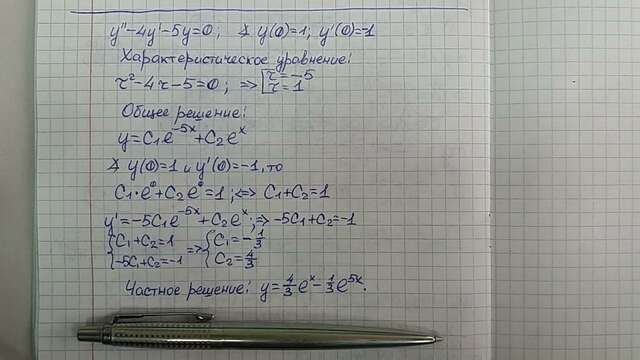 y''-4y'-5y=0; ∢ y(0)=1; y'(0)=-1
Характеристическое уравнение:
r²-4r-5=0; => [r=-5
r=1
Общее решение:
y=C₁e^{-5x}+C₂e^{x}
∢ y(0)=1 и y'(0)=-1, то
C₁·e⁰+C₂e⁰=1; <=> C₁+C₂=1
y'=-5C₁e^{-5x}+C₂e^{x}; => -5C₁+C₂=-1
{C₁+C₂=1 => {C₁=-1/3
{-5C₁+C₂=-1 {C₂=4/3
Частное решение: y=4/3e^{x}-1/3e^{5x}.